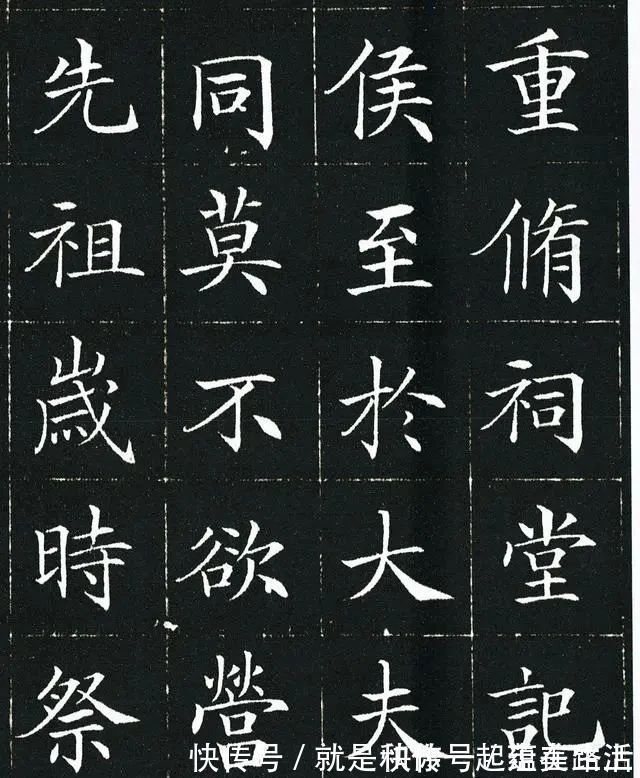 重脩祠堂記
侯至於大夫
同莫不欲營
先祖歲時祭
快传号 /